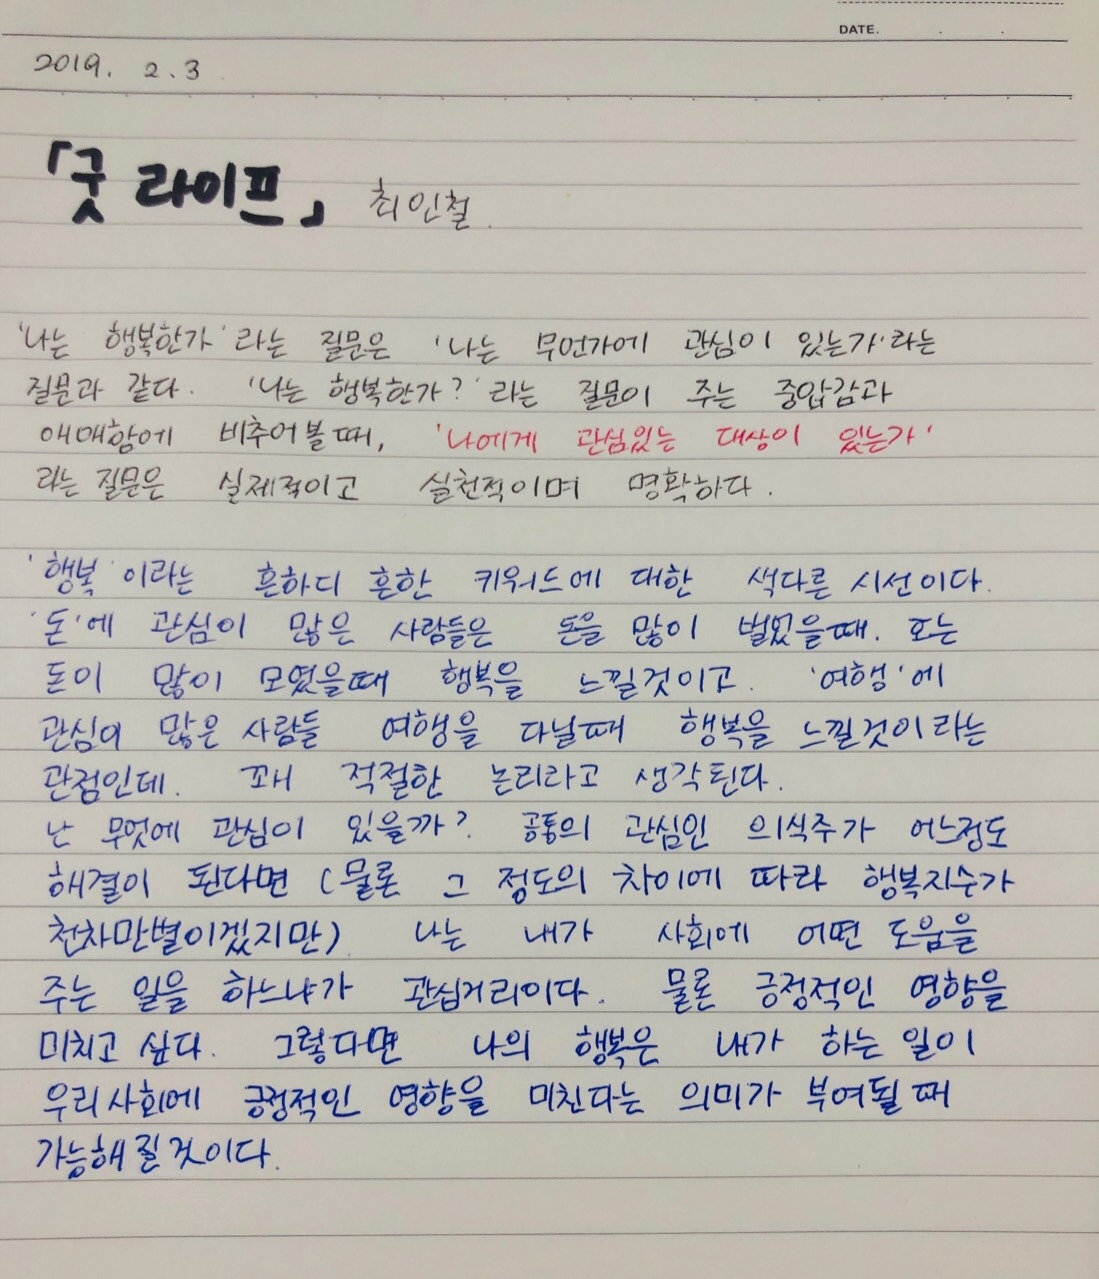 DATE. . .
2019. 2. 3
「굿 라이프」 최인철.
'나는 행복한가' 라는 질문은 '나는 무언가에 관심이 있는가' 라는
질문과 같다. '나는 행복한가?' 라는 질문이 주는 중압감과
애매함에 비추어볼때, '나에게 관심있는 대상이 있는가'
라는 질문은 실제적이고 실천적이며 명확하다.
'행복' 이라는 흔하디 흔한 키워드에 대한 색다른 시선이다.
'돈'에 관심이 많은 사람들은 돈을 많이 벌었을때. 또는
돈이 많이 모였을때 행복을 느낄것이고. '여행'에
관심이 많은 사람들 여행을 다닐때 행복을 느낄것이라는
관점인데. 꽤 적절한 논리라고 생각된다.
난 무엇에 관심이 있을까? 공통의 관심인 의식주가 어느정도
해결이 된다면 (물론 그 정도의 차이에 따라 행복지수가
천차만별이겠지만) 나는 내가 사회에 어떤 도움을
주는 일을 하느냐가 관심거리이다. 물론 긍정적인 영향을
미치고 싶다. 그렇다면 나의 행복은 내가 하는 일이
우리사회에 긍정적인 영향을 미친다는 의미가 부여될 때
가능해 질것이다.